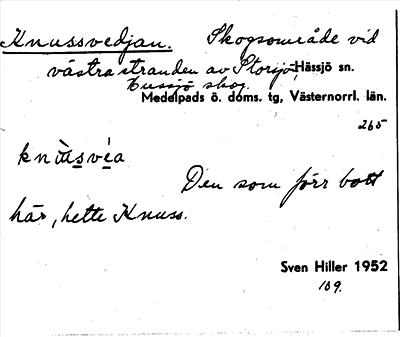 Knussvedjan. Skogsområde vid
västra stranden av Storsjö, Hässjö sn.
Hussjö skog.
Medelpads ö. doms. tg, Västernorrl. län.
265
Den som förr bott
här, hette Knuss.
Sven Hiller 1952
109.